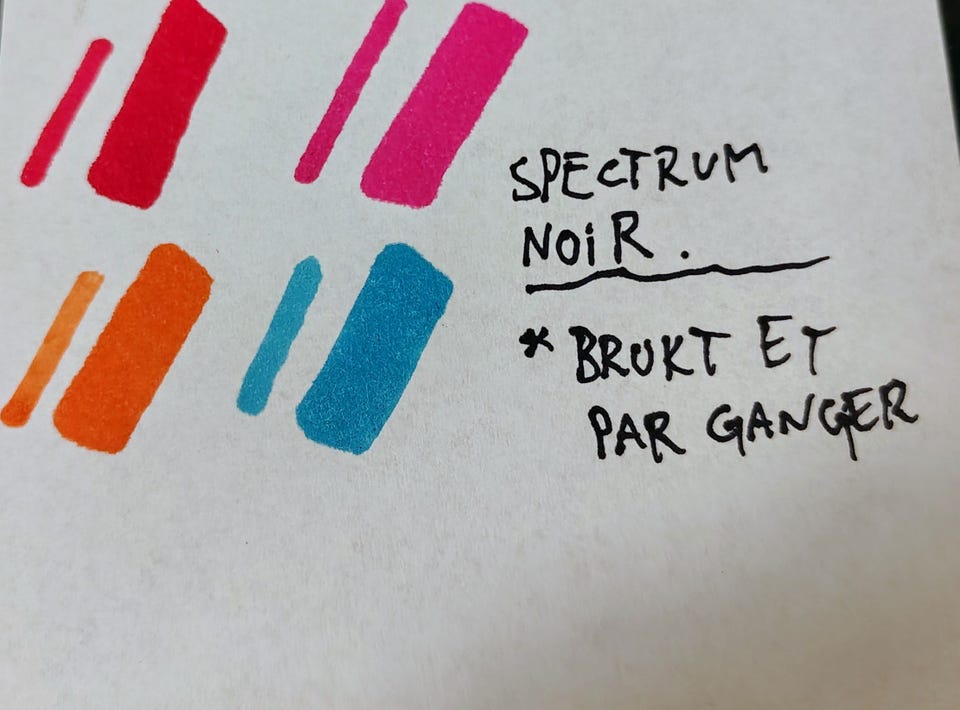 SPECTRUM
NOiR.
* BRUKT ET
PAR GANGER